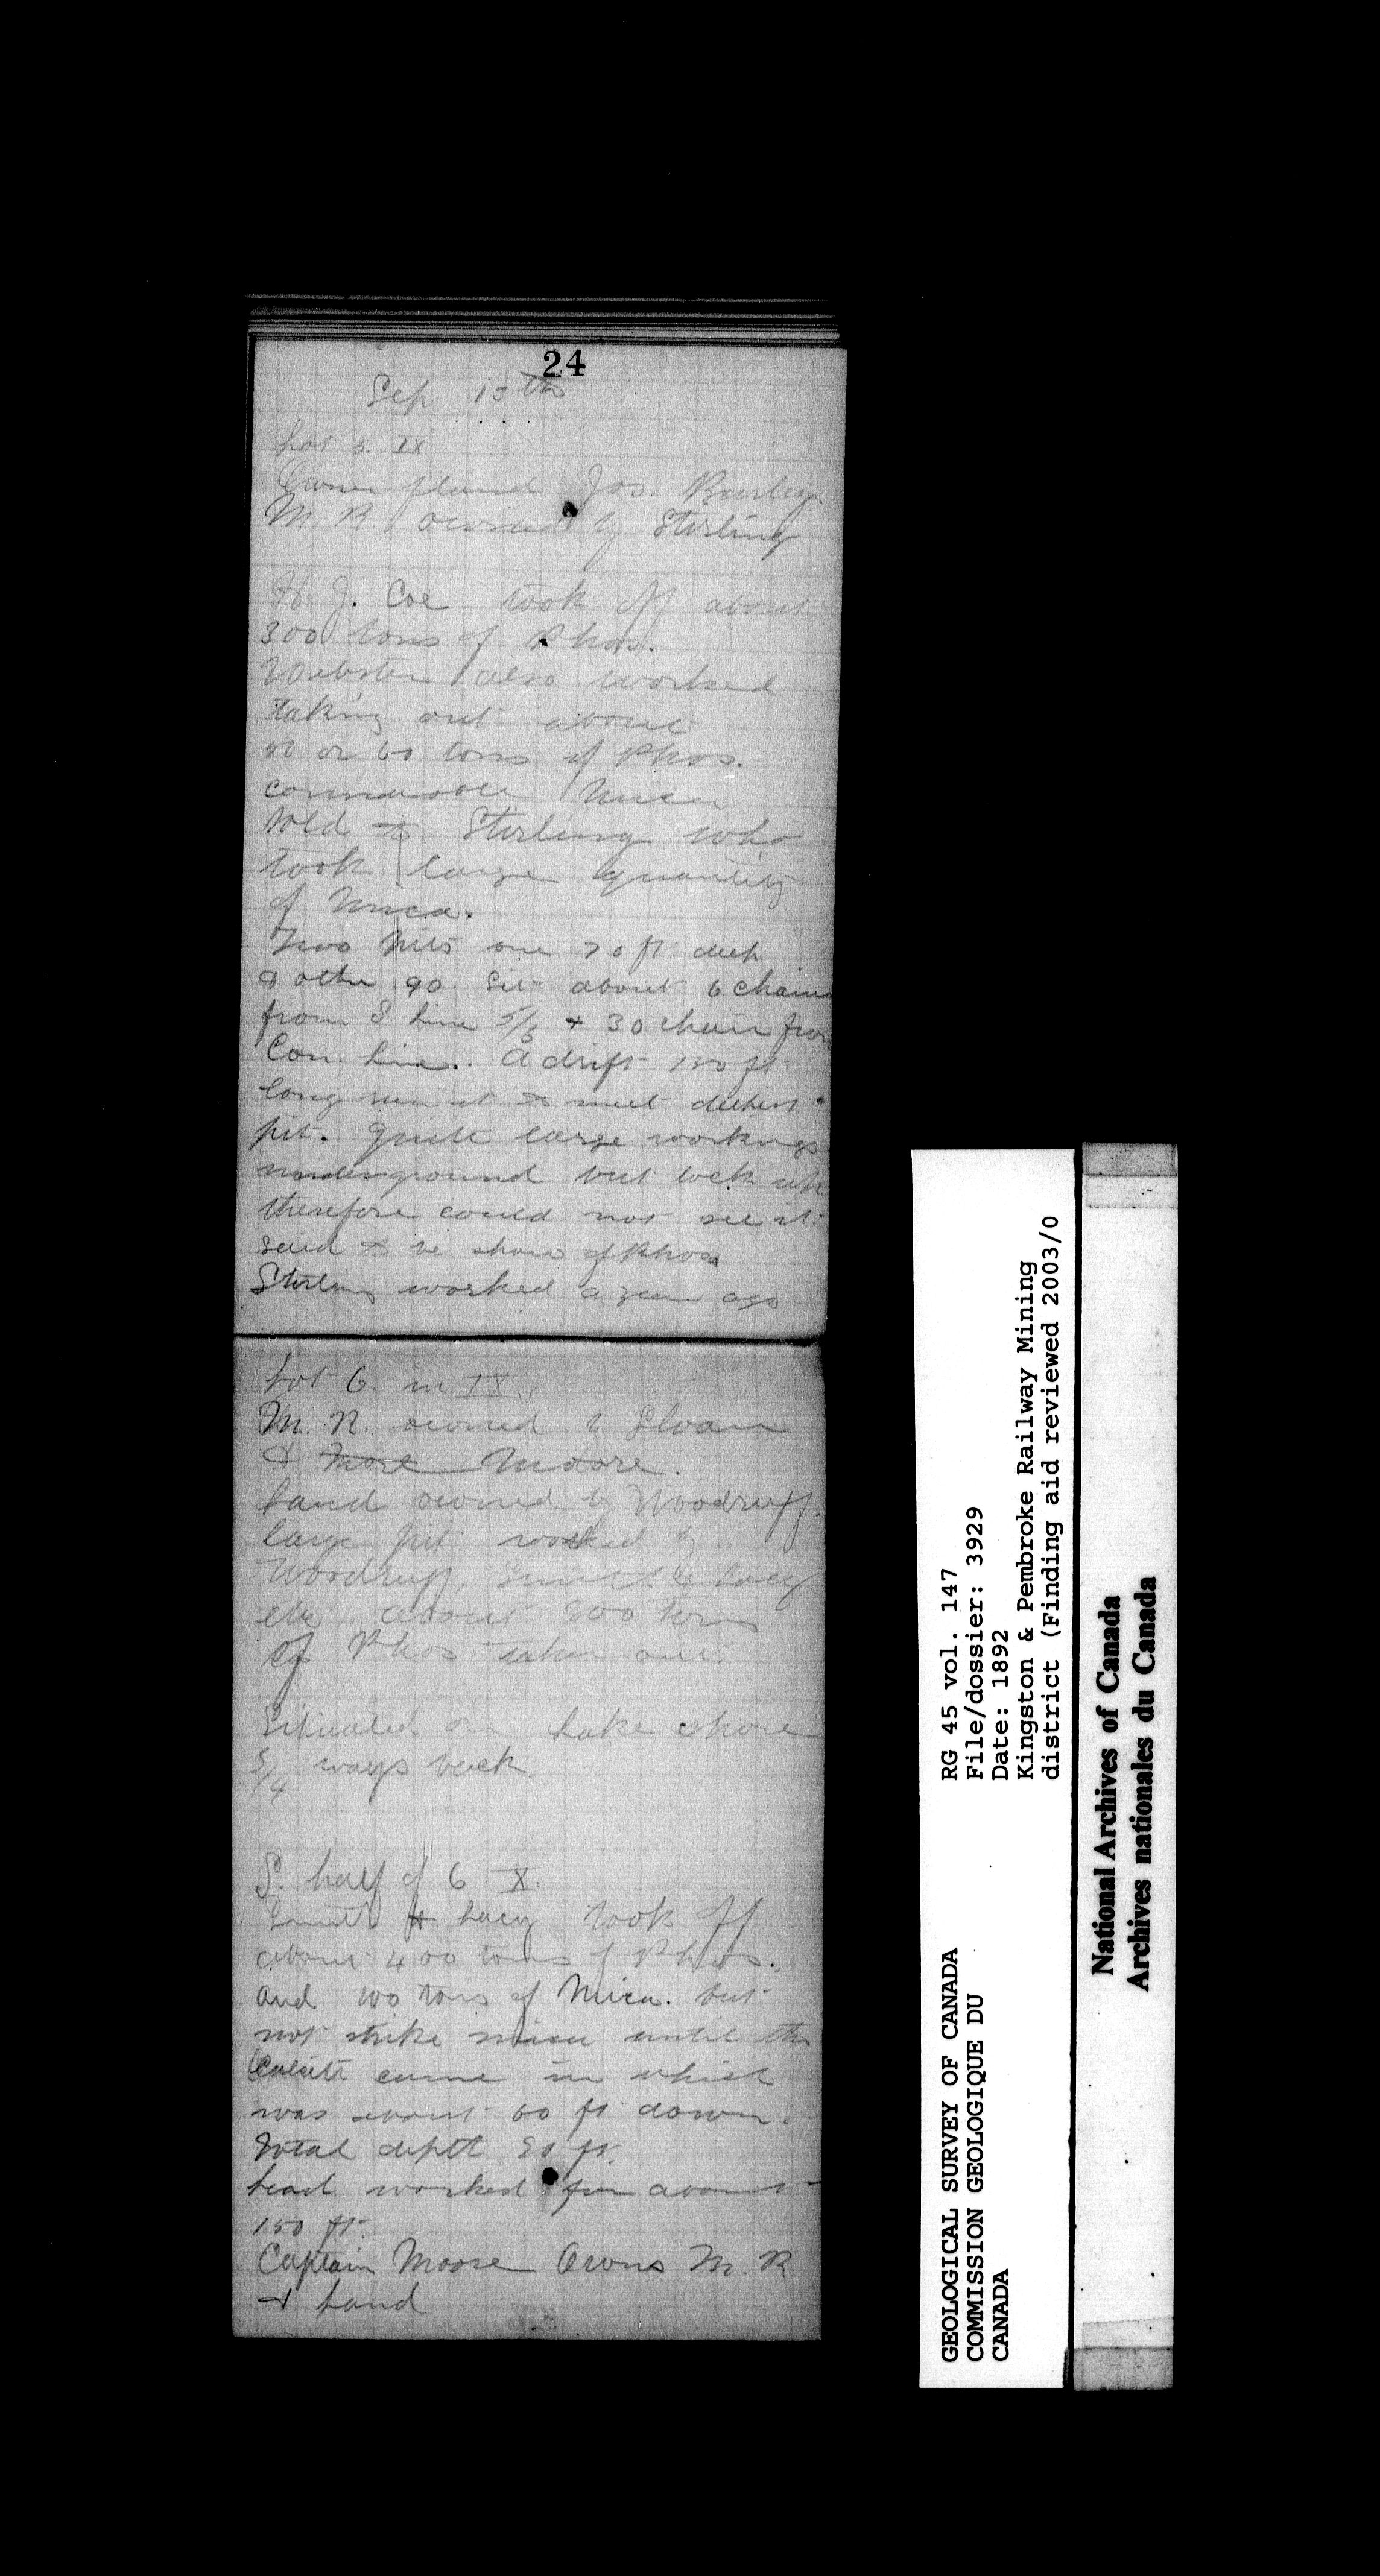 24
Sep 13th
Lot 5 IX
Owner of land Jos. Burley.
M. R. owned by Sterling
H. J. Coe took off about
300 tons of Phos.
Webster also worked
taking out about
or 60 tons of Phos.
Mica
Sold to Sterling who
took large quantity
of Mica.
Two pits one 70 ft deep
& other 90. Sit about 6 chains
from S. line 5/6 & 30 chain from
Con. line. A drift 150 ft
long run at to meet deepest
pit. Quite large workings
underground but lock up
therefore could not see it
said to be show of Phos
Sterling worked a year ago
Lot 6 in IX
M. R. owned by Sloan
& More Moore.
Land owned by Woodruff.
large pit worked by
Woodruff, Smith & Lacy
etc about 300 tons
of Phos taken out.
Situated on Lake shore
3/4 ways back.
S. half of 6 X.
Smith & Lacy took off
about 400 tons of Phos.
and 100 tons of Mica. but
not strike mica until the
Calcite came in which
was about 60 ft down.
Total depth 80 ft.
Lead worked for about
150 ft.
Captain Moore Owns M. R
& Land
GEOLOGICAL SURVEY OF CANADA
COMMISSION GEOLOGIQUE DU
CANADA
RG 45 vol. 147
File/dossier: 3929
Date: 1892
Kingston & Pembroke Railway Mining
district (Finding aid reviewed 2003/0
National Archives of Canada
Archives nationales du Canada